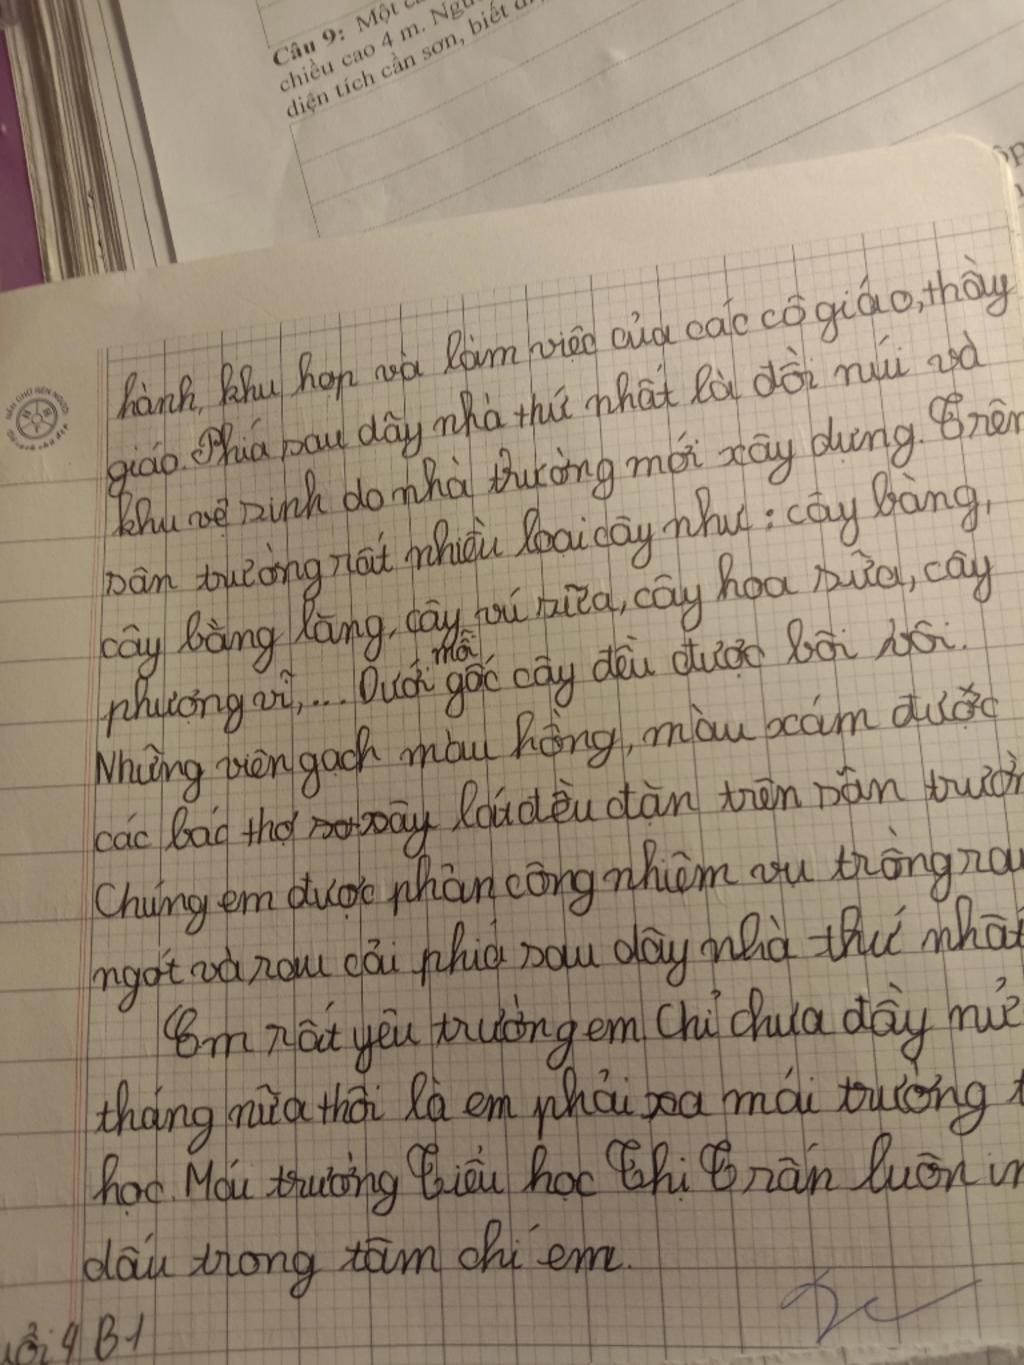 Câu 9: Một
chiều cao 4 m.
diện tích cần sơn, biết
hành, khu họp và làm việc của các cô giáo, thầy
giáo. Phía sau dãy nhà thứ nhất là đồi núi và
khu vệ sinh do nhà trường mới xây dựng. Trên
sân trường rất nhiều loại cây như: cây bàng,
cây bằng lăng, cây vú sữa, cây hoa sữa, cây
phượng vĩ,... Dưới mỗi gốc cây đều được bôi vôi.
Những viên gạch màu hồng, màu xám được
các bác thợ xây lát đều đặn trên sân
Chúng em được phân công nhiệm vụ trồng
ngót và rau cải phía sau dãy nhà thứ nhất
Em rất yêu trường em Chỉ chưa đầy
tháng nữa thôi là em phải xa mái trường
học. Mái trường Tiểu học Thị Trấn luôn in
dấu trong tâm chí em.
B-1